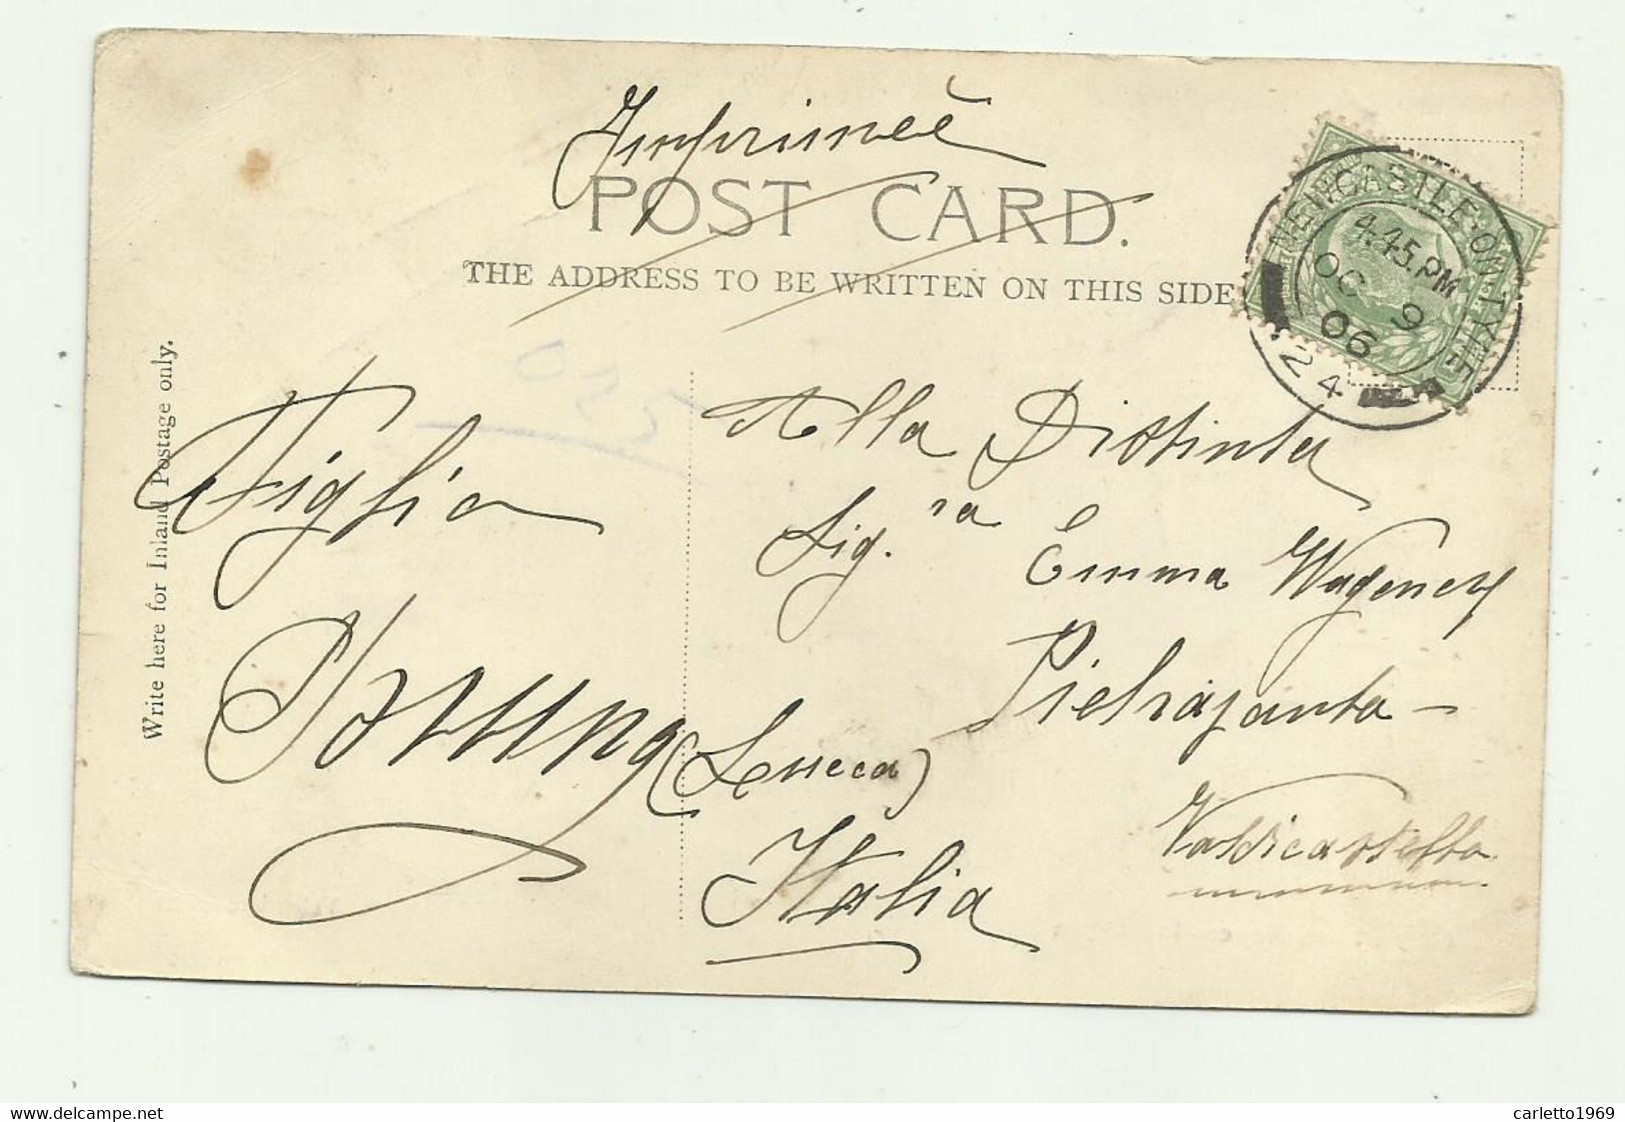 Imprimeè
POST CARD.
THE ADDRESS TO BE WRITTEN ON THIS SIDE
NEWCASTLE·ON·TYNE
4.45.PM
OC 9
06
24
Write here for Inland Postage only.
Figlio
Alla Distinta
Sig.ra Emma
Pietrasanta –
(Lucca)
Italia
Valdicastello
www.delcampe.net
carletto1969